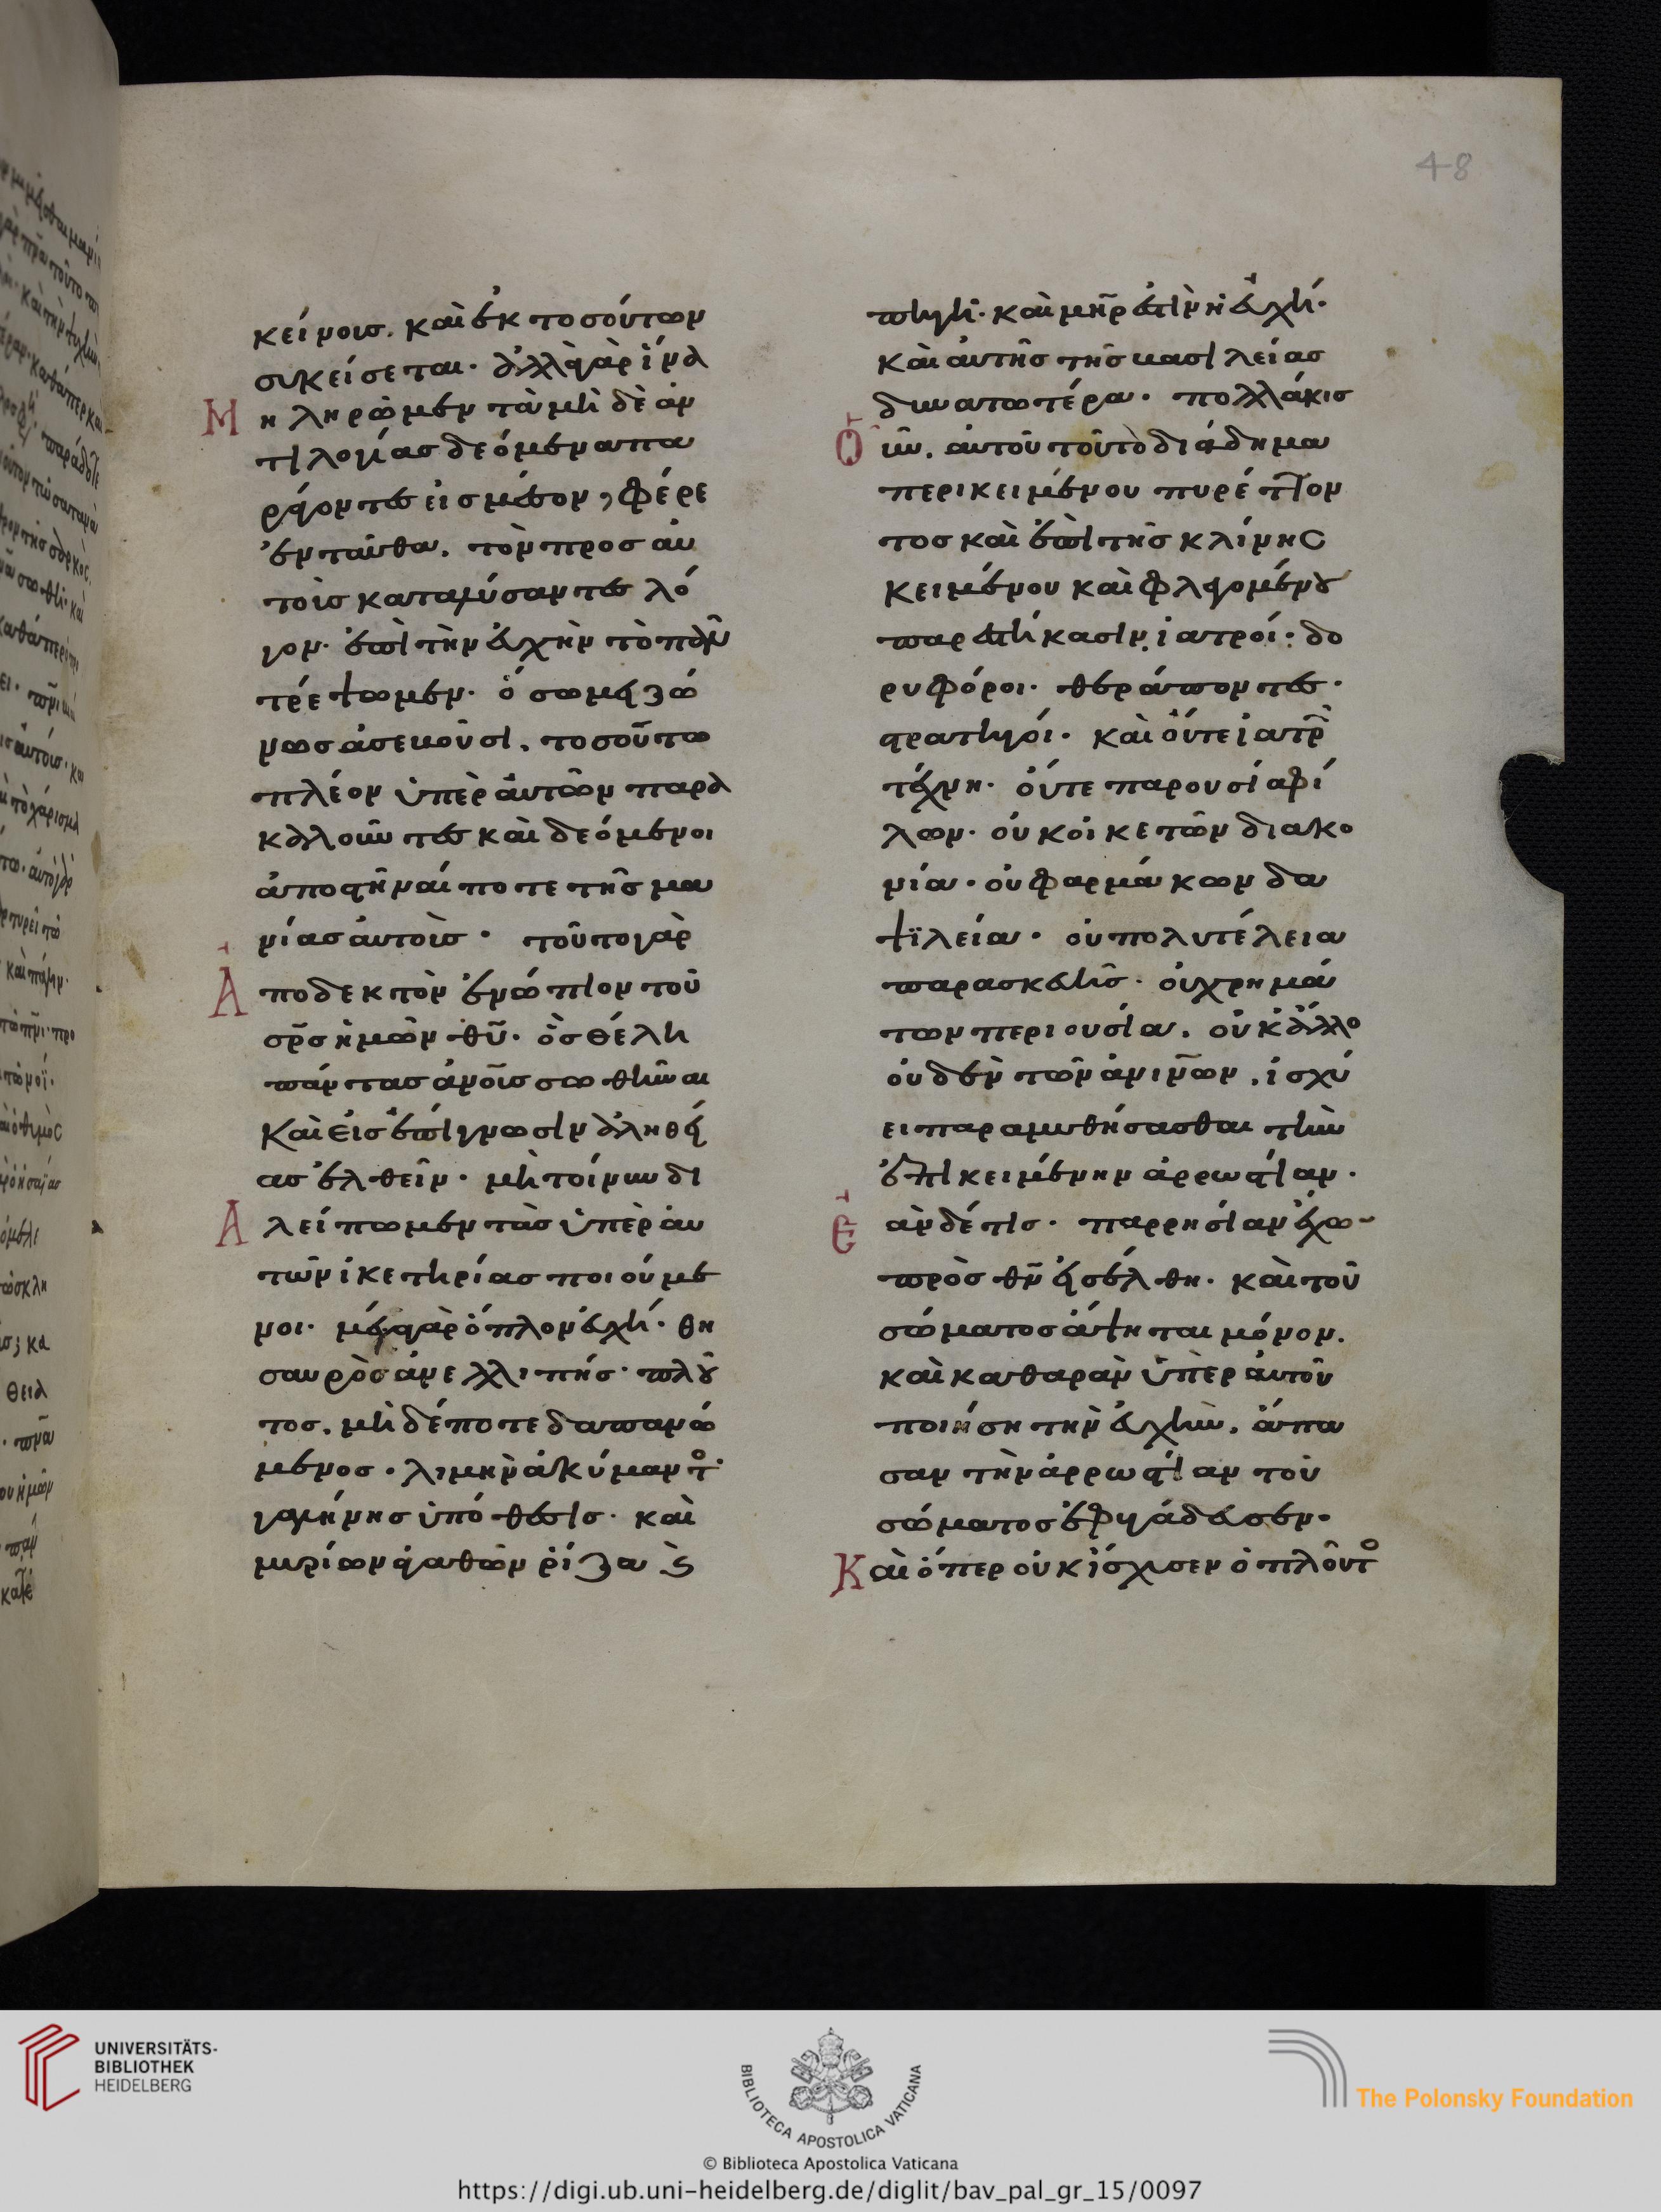 48
κείνοις. καὶ ἐκ τοσούτων
συκείσεται· ἀλλὰ γὰρ ἵνα
Μ η πληρῶμεν τὰ μὴ δὲ ἀν
τιλογίας δεόμενα πα
ράγοντες εἰς μέσον, φέρε
ἐνταῦθα. τὸν προς αὐ
τοὺς καταλύσαντες λό
γον. ἐπὶ τὴν εὐχὴν τὸ πᾶν
τρέψωμεν. ὅσω μειζό
νως ἀσεβοῦσι. τοσοῦτω
πλέον ὑπὲρ αὐτῶν παρα
καλοῦντες καὶ δεόμενοι
ἀποστῆναί ποτε τῆς μα
νίας αὐτοῖς· τοῦτο γὰρ
Ἀ ποδεκτὸν ἐνώπιον τοῦ
σρ̅ς ἡμῶν θυ̅. ὃς θέλει
πάντας ἀνο̅ις σωθῆναι
καὶ εἰς ἐπίγνωσιν ἀληθεί
ας ἐλθεῖν. μὴ τοίνυν δι
Α λείπωμεν τὰς ὑπὲρ αὐ
τῶν ἱκετηρίας ποιούμε
νοι. μέγα γὰρ ὅπλον εὐχή. θη
σαυρὸς ἀνελλιπής. πλοῦ
τος. μὴ δέποτε δαπανώ
μενος. λιμὴν ἀκύμαντος.
γαλήνης ὑπόθεσις. καὶ
μυρίων ἀγαθῶν ῥίζα ϛ̀
πηγή. καὶ μη̅ρ ἐστὶν ἡ εὐχή.
καὶ αὐτῆς τῆς βασιλείας
δυνατωτέρα. πολλάκις
Ὁ ῦν. αὐτοῦ τοῦτο διάδημα
περικειμένου πυρέττον
τος καὶ ἐπὶ τῆς κλίνης
κειμένου καὶ φλεγομένου
παρεστήκασιν ἰατροί. δο
ρυφόροι. θεράποντες.
στρατηγοί. καὶ οὔτε ἰατρῶ̅
τέχνη. οὔτε παρουσία φί
λων. οὐκ οἰκετῶν διακο
νία. οὐ φαρμάκων δα
ψϊλεία. οὐ πολυτέλεια
παρασκευῆς. οὐ χρημά
των περιουσία. οὐκ ἄλλο
οὐδὲν τῶν ἀνι̅νων. ἰσχύ
ει παραμυθήσασθαι τὴν
ἐπικειμένην ἀρρωστίαν.
Ἐ ὰν δέ τις. παρρησίαν ἔχω
πρὸς θν̅ εἰσέλθη. καὶ τοῦ
σώματος ἅψηται μόνον.
καὶ καθαρὰν ὑπὲρ αὐτοῦ
ποιήση τὴν εὐχὴν. ἅπα
σαν τὴν ἀρρωστίαν τοῦ
σώματος ἐφυγάδευσεν.
Κ αὶ ὅπερ οὐκ ἴσχυσεν ὁ πλοῦτος
UNIVERSITÄTS-
BIBLIOTHEK
HEIDELBERG
BIBLIOTECA APOSTOLICA VATICANA
The Polonsky Foundation
© Biblioteca Apostolica Vaticana
https://digi.ub.uni-heidelberg.de/diglit/bav_pal_gr_15/0097